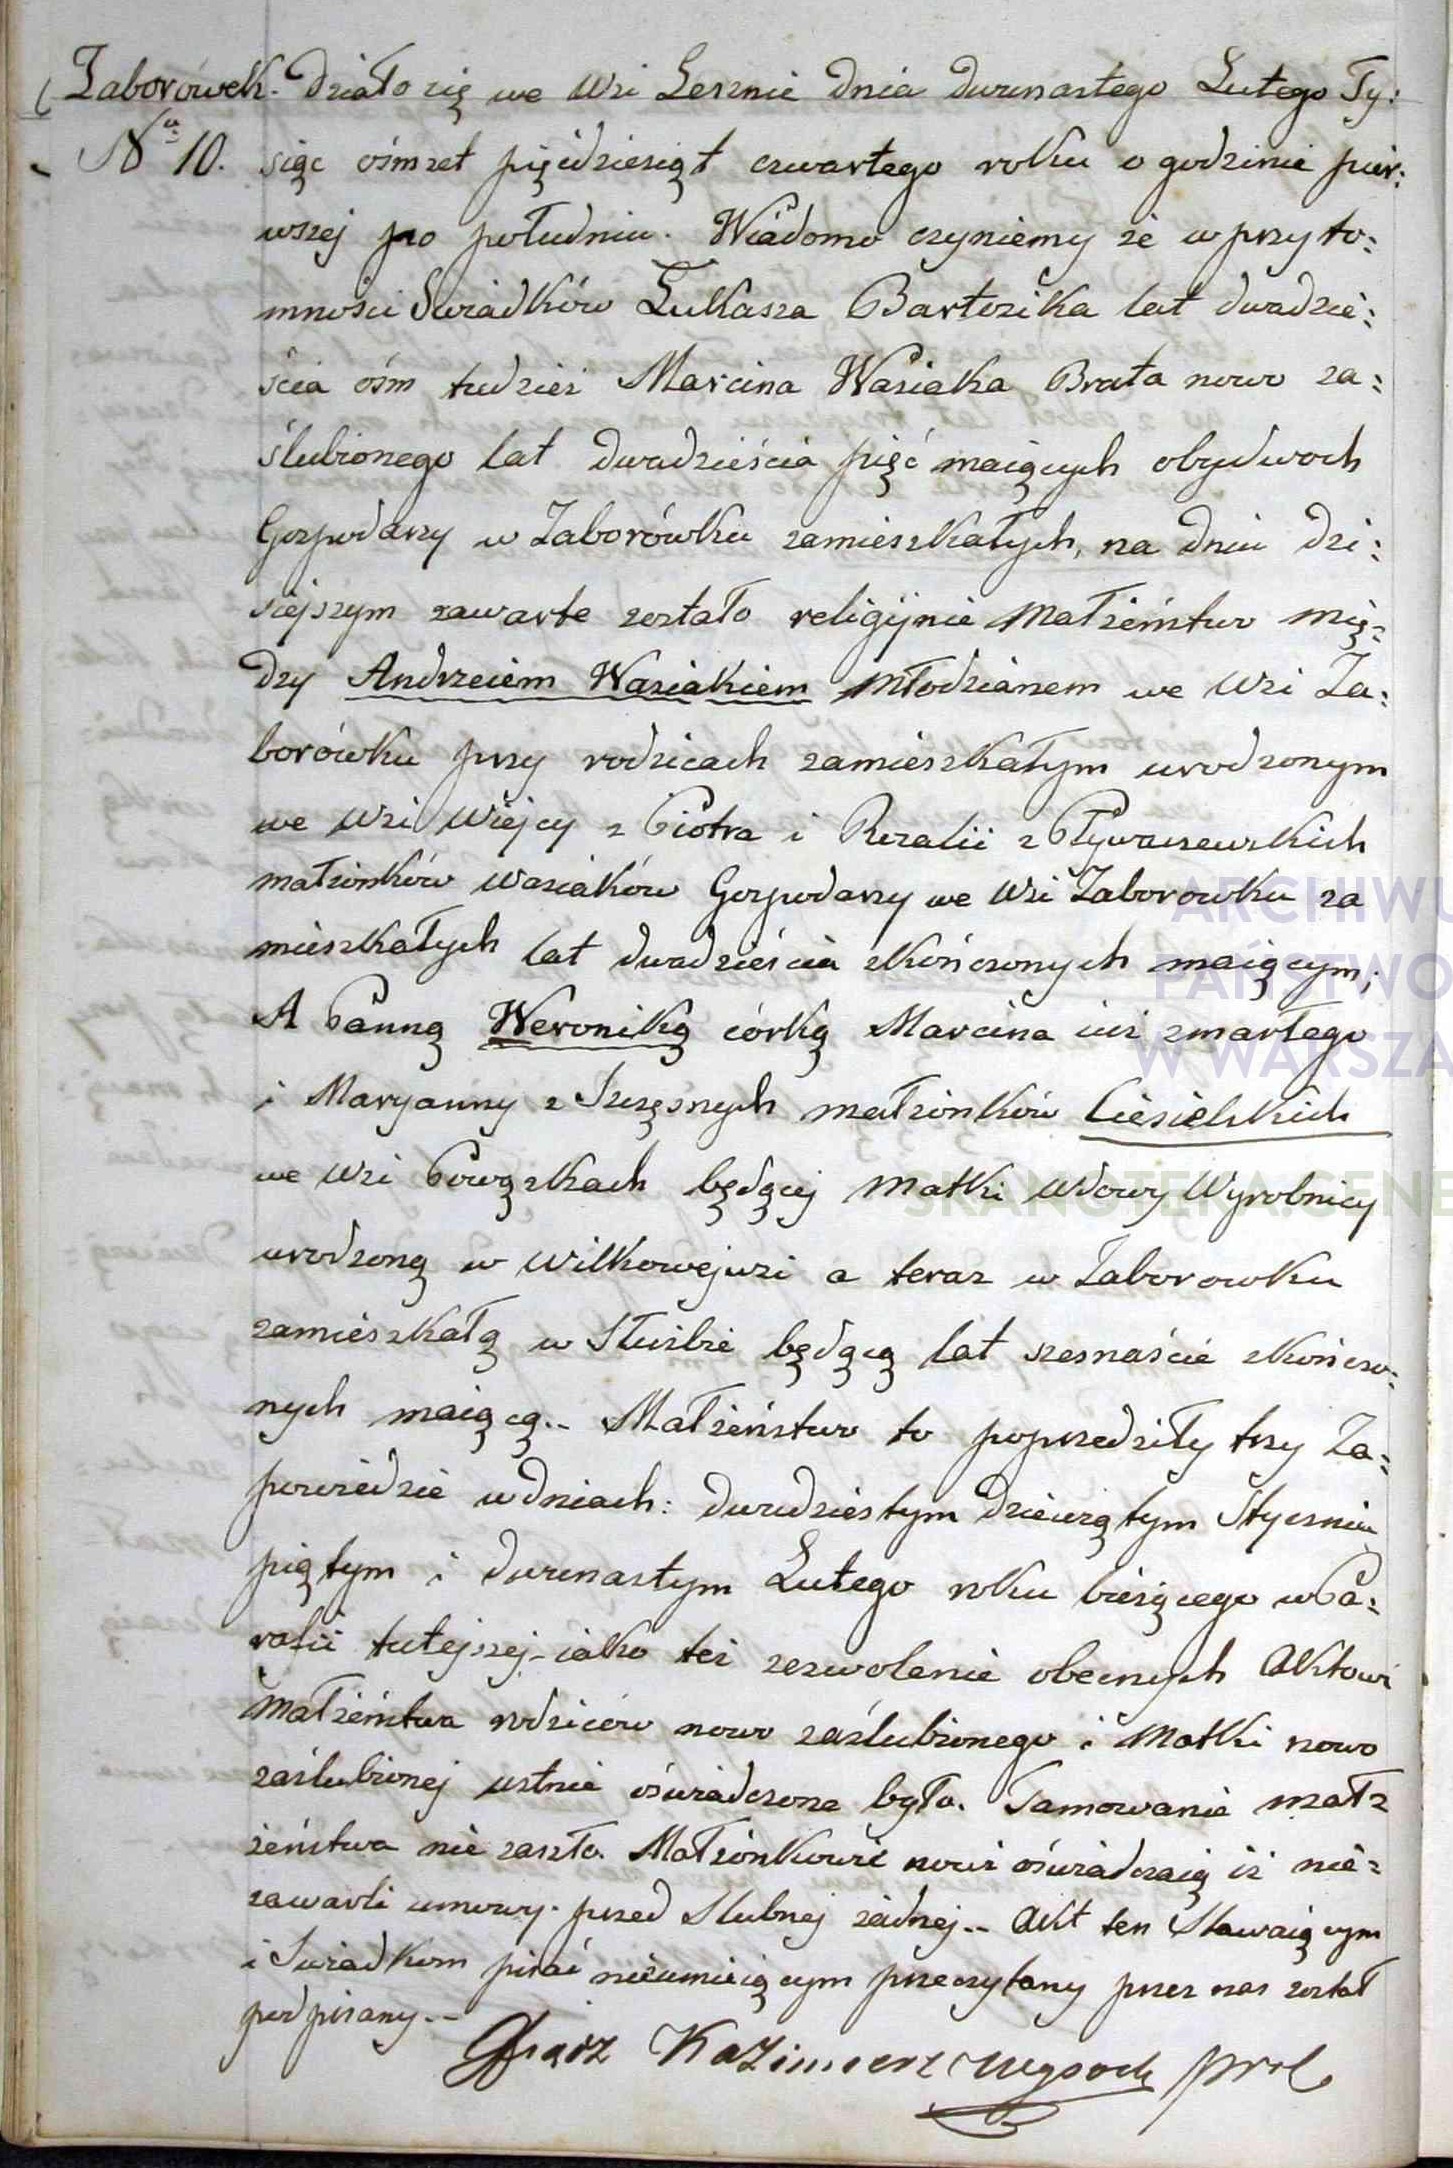 Zaborówek. Działo się we Wsi Lesznie dnia dwunastego Lutego Ty:
Nº 10. siąc ośmset pięćdziesiąt czwartego roku o godzinie pier:
wszej po południu. Wiadomo czyniemy że w przyto:
mności Świadków Łukasza Bartosika lat dwadzie:
ścia ośm tudzież Marcina Wasiaka Brata nowo za:
ślubionego lat dwadzieścia pięć maiących obydwoch
Gospodarzy w Zaborówku zamieszkałych, na dniu dzi:
siejszym zawarte zostało religijnie Małżeństwo mię:
dzy Andrzeiem Wasiakiem Młodzianem we Wsi Za:
borówku przy rodzicach zamieszkałym urodzonym
we Wsi Wiejcy z Piotra i Rozalii z Pływaczewskich
małżonków Wasiaków Gospodarzy we Wsi Zaborowku za
mieszkałych lat dwadzieścia skończonych maiącym;
A Panną Weroniką córką Marcina iuż zmarłego
i Maryanny z Szczęsnych małżonków Ciesielskich
we Wsi Powązkach będącej Matki Wdowy Wyrobnicy
urodzoną w Wilkowejwsi a teraz w Zaborowku
zamieszkałą w Służbie będącą lat szesnaście skończo:
nych maiącą.- Małżeństwo to poprzedziły trzy Za:
powiedzie w dniach: dwudziestym dziewiątym Stycznia
piątym i dwunastym Lutego roku bieżącego w Pa:
rafii tutejszej- iako też zezwolenie obecnych Aktowi
Małżeństwa rodziców nowo zaślubionego i Matki nowo
zaślubionej ustnie oświadczone było. Tamowanie małż
żeństwa nie zaszło. Małżonkowie nowi oświadczaią iż nie:
zawarli umowy przed Slubnej żadnej.- Akt ten Stawaiącym
i Swiadkom pisać nieumieiącym przeczytany przez nas został
podpisany.-
Xiądz Kazimierz
ARCHIWU
PAŃSTWO
W WARSZA
SKANOTEKA.GENE